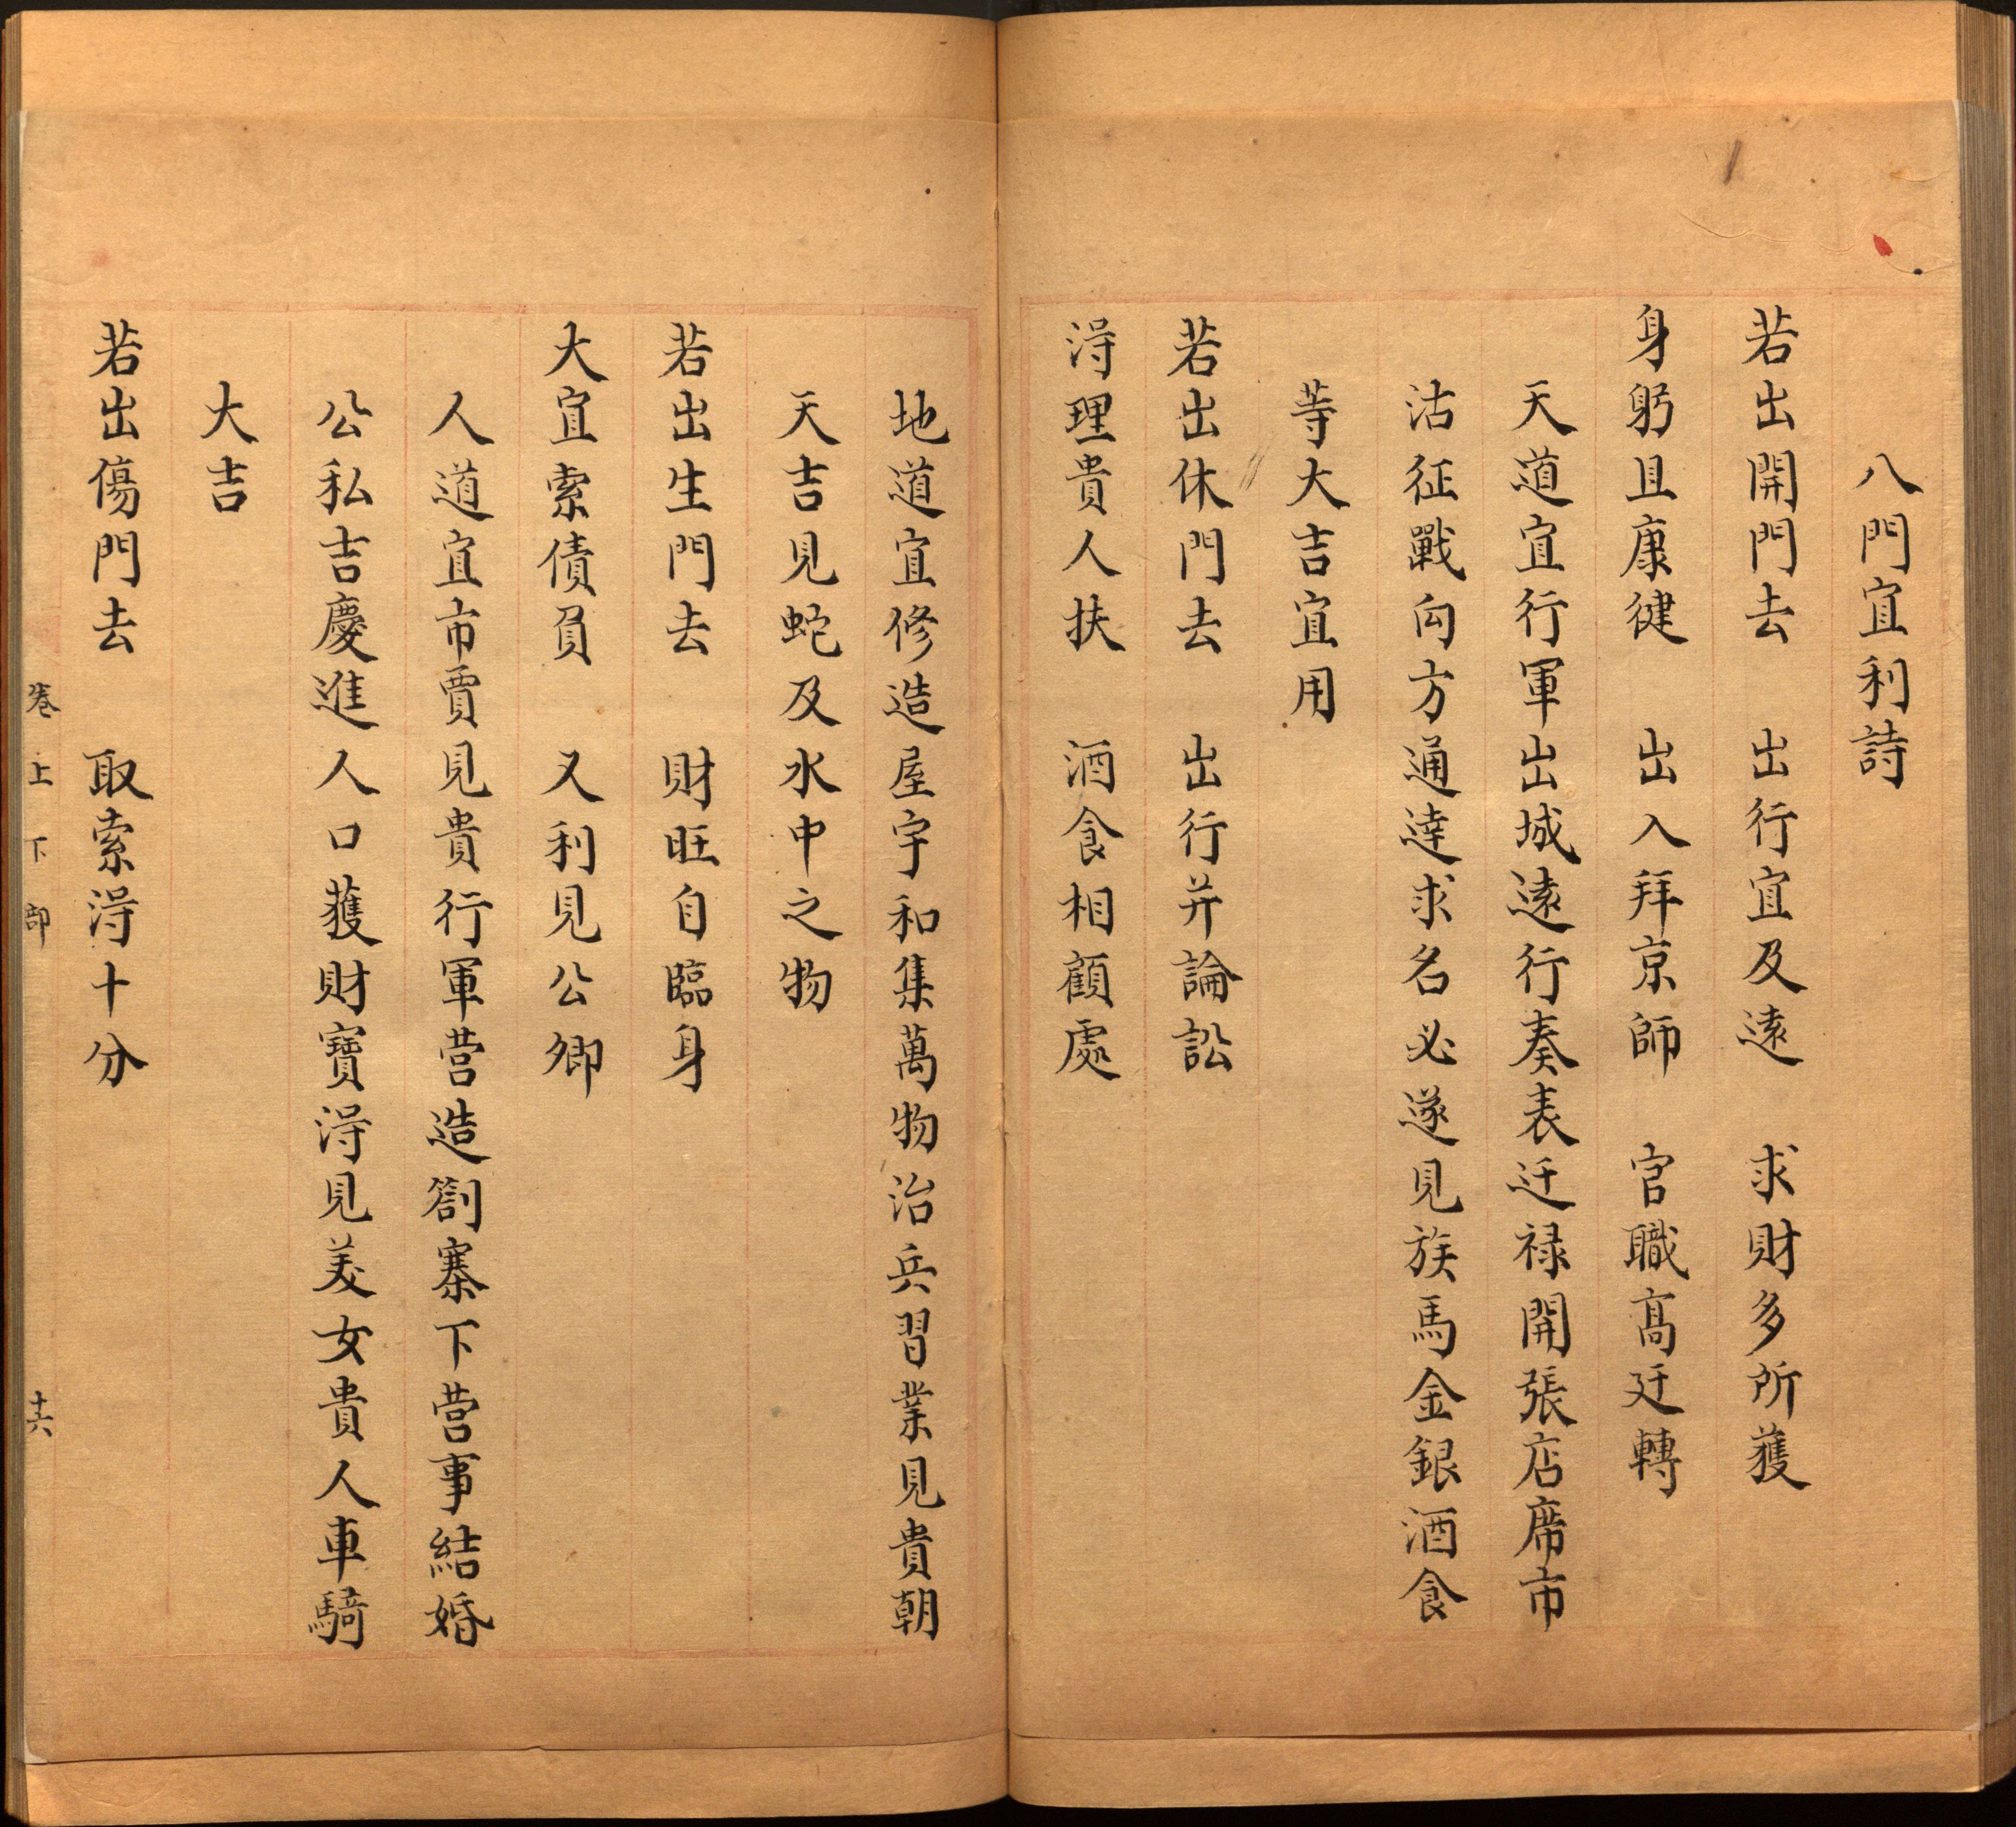 八門宜利詩
若出開門去　出行宜及遠　求財多所獲
身躬且康健　出入拜京師　官職高迁轉
天道宜行軍出城遠行奏表迁禄開張店席市
沽征戰向方通達求名必遂見族馬金銀酒食
等大吉宜用
若出休門去　出行并論訟
淂理貴人扶　酒食相顧處
地道宜修造屋宇和集萬物治兵習業見貴朝
天吉見蛇及水中之物
若出生門去　財旺自臨身
大宜索債負　又利見公卿
人道宜市賈見貴行軍营造劄寨下营事結婚
公私吉慶進人口獲財寶淂見美女貴人車騎
大吉
若出傷門去　取索淂十分
卷上　下部　十六